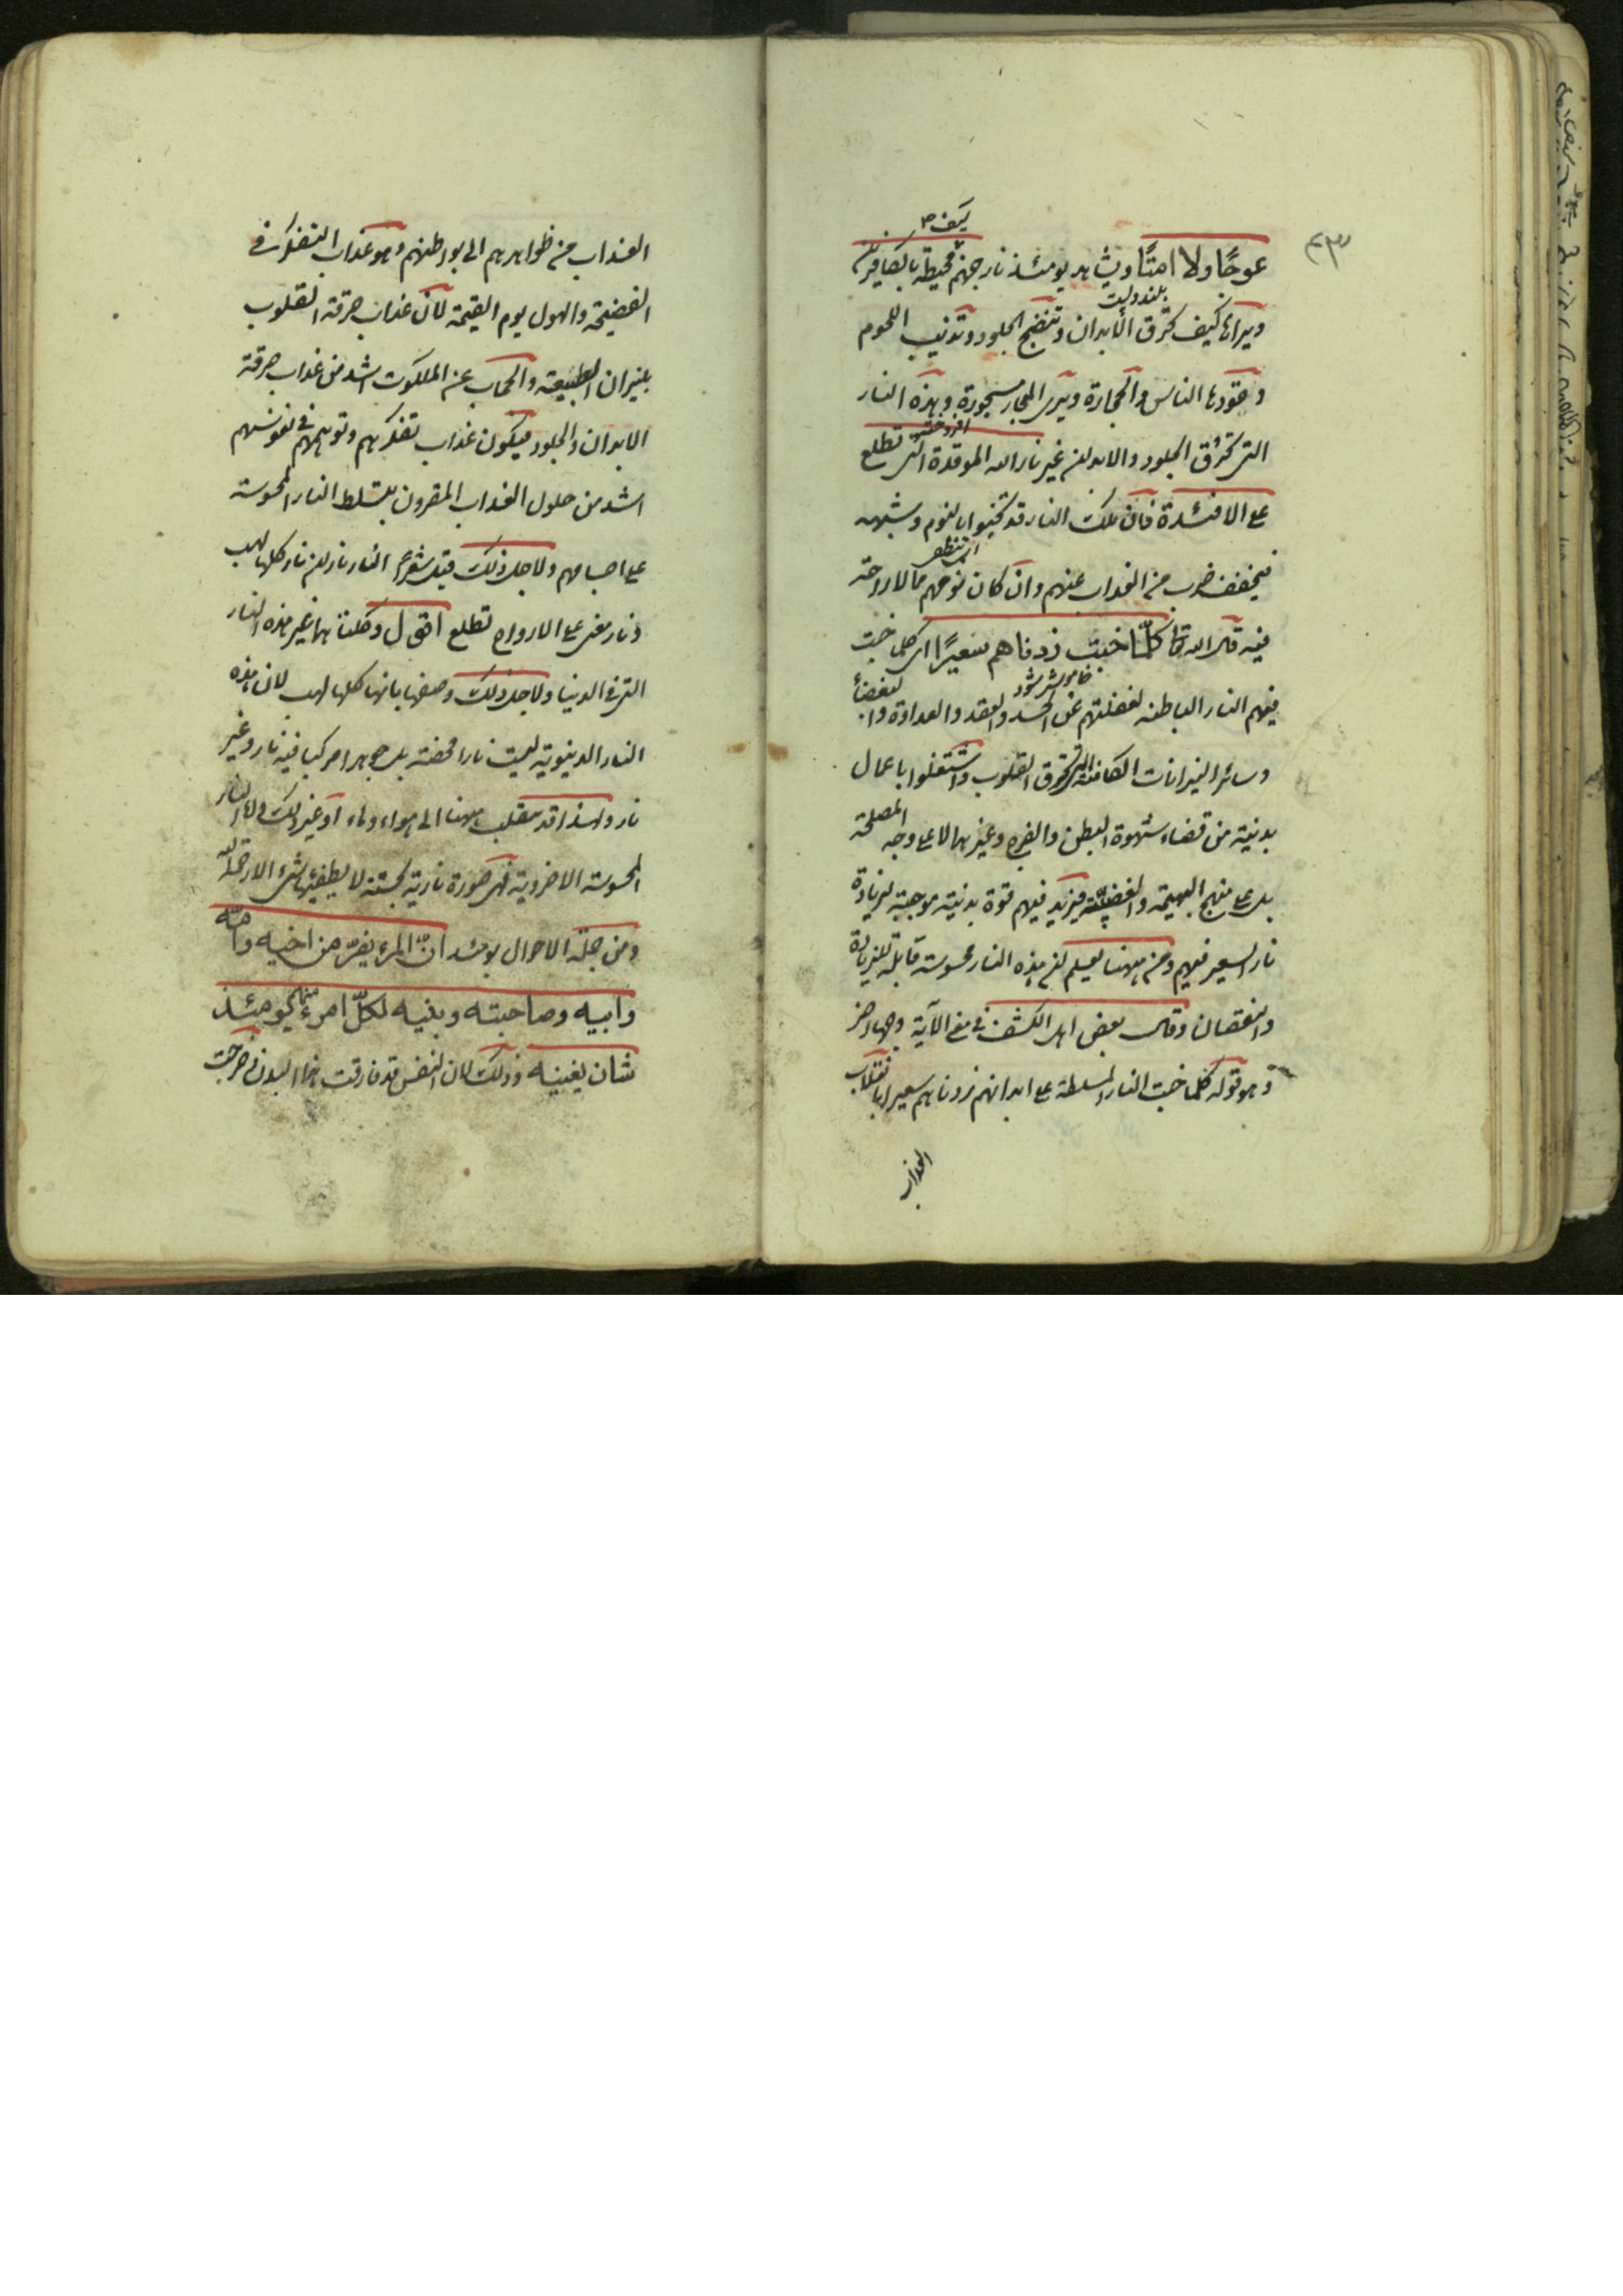 ٤٣
عوجًا ولا امتًا ويشاهد يومئذ نار جهنم محيطة بالكافرين
ويراها كيف تحرق الأبدان وتنضج الجلود وتذيب اللحوم
وقودها الناس والحجارة ويرى البحار مسجورة وهذه النار
التي تحرق الجلود والابدان غير نار الله الموقدة التي تطلع
على الافئدة فان تلك النار قد تخبوا بالنوم وشبهه
فيخفف ضرب من العذاب عنهم وان كان نومهم مما لا راحة
فيه قال الله تعا كلّما خبت زدناهم سعيرًا اى كلما خبت
خاموش شود
فيهم النار الباطنه لغفلتهم عن الحسد والعقد والعداوة والبغضاء
وسائر النيرانات الكامنة التي تحرق القلوب واشتغلوا باعمال
بدنية من قضاء شهوة البطن والفرج وغيرهما لا على وجه المصلحة
بل على منهج البهيمة والغضبيّة فيزيد فيهم قوة بدنية موجبة لزيادة
نار السعير فيهم ومن ههنا يعلم ان هذه النار محسوسة قابلة للزيادة
والنقصان وقال بعض اهل الكشف في معنى الآية وجها اخر
وهو قوله كلما خبت النار المسلطة على ابدانهم زدناهم سعيرا بانقلاب
العذاب
العذاب من ظواهرهم الى بواطنهم وهو عذاب التفكر في
الفضيحة والهول يوم القيمة لان عذاب حرقة القلوب
بنيران الطبيعة والحجاب عن الملكوت اشد من عذاب حرقة
الابدان والجلود فيكون عذاب تفكرهم وتوهمهم في نفوسهم
اشد من حلول العذاب المقرون بتسلط النار المحسوسة
على اجسامهم ولاجل ذلك قيل شعرًا النار ناران نار كلها لهب
ونار معنى على الارواح تطلع اقول وكلتاهما غير هذه النار
التي في الدنيا ولاجل ذلك وصفها بانها كلها لهب لان هذه
النار الدنيوية ليست نارا محضة بل جوهرا مركبا فيه نار وغير
نار ولهذا قد ينقلب ههنا الى هواء وماء او غير ذلك واما النار
المحسوسة الاخروية فهى صورة نارية بحتة لا يطفيها شئ الا رحمة الله
ومن جملة الاحوال يومئذ انّ المرء يفرّ من اخيه وامّه
وابيه وصاحبته وبنيه لكلّ امرء منهم يومئذ
شان يغنيه وذلك لان النفس قد فارقت هذا البدن وخرجت